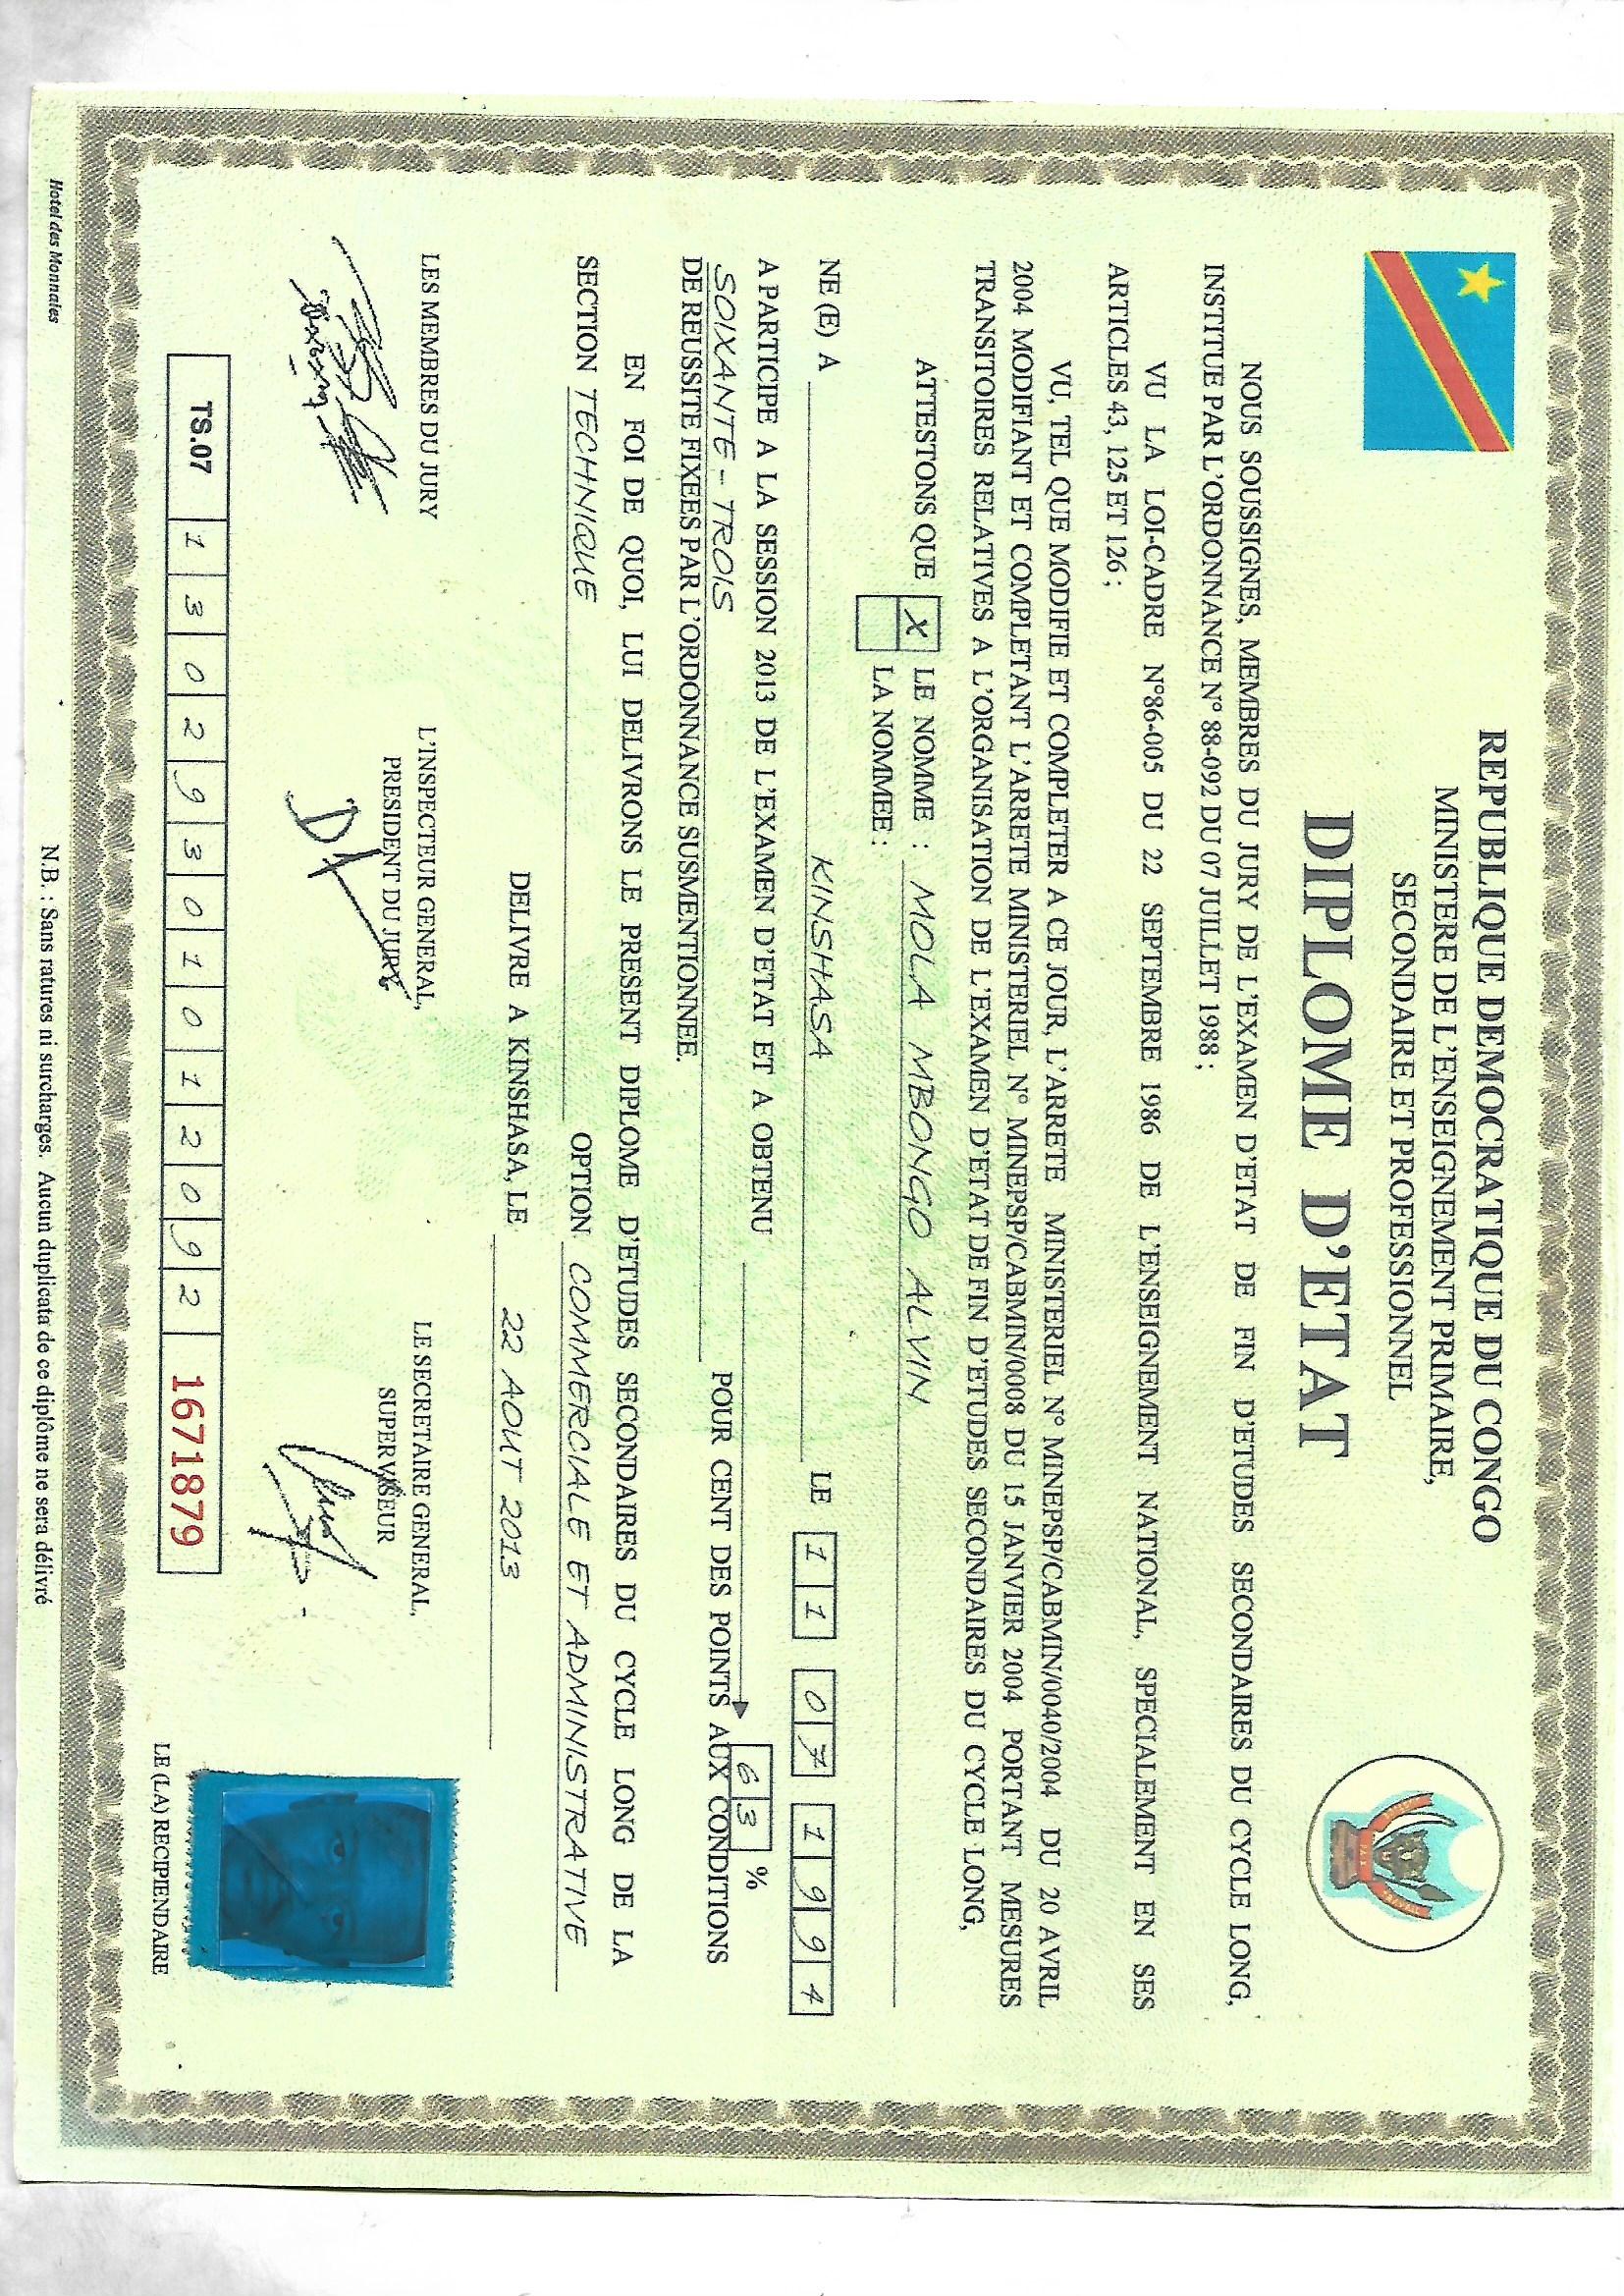 REPUBLIQUE DEMOCRATIQUE DU CONGO
MINISTERE DE L'ENSEIGNEMENT PRIMAIRE,
SECONDAIRE ET PROFESSIONNEL
DIPLOME D'ETAT
NOUS SOUSSIGNES, MEMBRES DU JURY DE L'EXAMEN D'ETAT DE FIN D'ETUDES SECONDAIRES DU CYCLE LONG,
INSTITUE PAR L'ORDONNANCE N° 88-092 DU 07 JUILLET 1988 ;
VU LA LOI-CADRE N°86-005 DU 22 SEPTEMBRE 1986 DE L'ENSEIGNEMENT NATIONAL, SPECIALEMENT EN SES
ARTICLES 43, 125 ET 126 ;
VU, TEL QUE MODIFIE ET COMPLETER A CE JOUR, L'ARRETE MINISTERIEL N° MINEPSP/CABMIN/0040/2004 DU 20 AVRIL
2004 MODIFIANT ET COMPLETANT L'ARRETE MINISTERIEL N° MINEPSP/CABMIN/0008 DU 15 JANVIER 2004 PORTANT MESURES
TRANSITOIRES RELATIVES A L'ORGANISATION DE L'EXAMEN D'ETAT DE FIN D'ETUDES SECONDAIRES DU CYCLE LONG,
ATTESTONS QUE X LE NOMME : MOLA MBONGO ALVIN
LA NOMMEE :
NE (E) A KINSHASA LE 11 07 1994
A PARTICIPE A LA SESSION 2013 DE L'EXAMEN D'ETAT ET A OBTENU 63 %
SOIXANTE-TROIS POUR CENT DES POINTS AUX CONDITIONS
DE REUSSITE FIXEES PAR L'ORDONNANCE SUSMENTIONNEE.
EN FOI DE QUOI, LUI DELIVRONS LE PRESENT DIPLOME D'ETUDES SECONDAIRES DU CYCLE LONG DE LA
SECTION TECHNIQUE OPTION COMMERCIALE ET ADMINISTRATIVE
DELIVRE A KINSHASA, LE 22 AOUT 2013
LES MEMBRES DU JURY
L'INSPECTEUR GENERAL,
PRESIDENT DU JURY
LE SECRETAIRE GENERAL,
SUPERVISEUR
LE (LA) RECIPIENDAIRE
TS.07 1 3 0 2 9 3 0 1 0 1 2 0 9 2 1671879
Hotel des Monnaies
N.B. : Sans ratures ni surcharges. Aucun duplicata de ce diplôme ne sera délivré